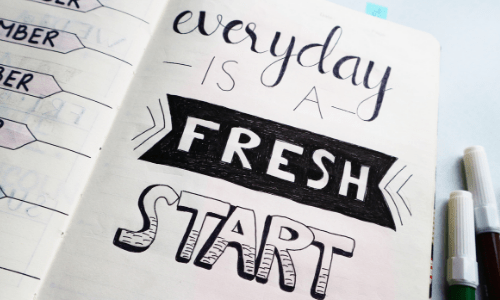 MBER
BER
everyday
IS
A
FRESH
START